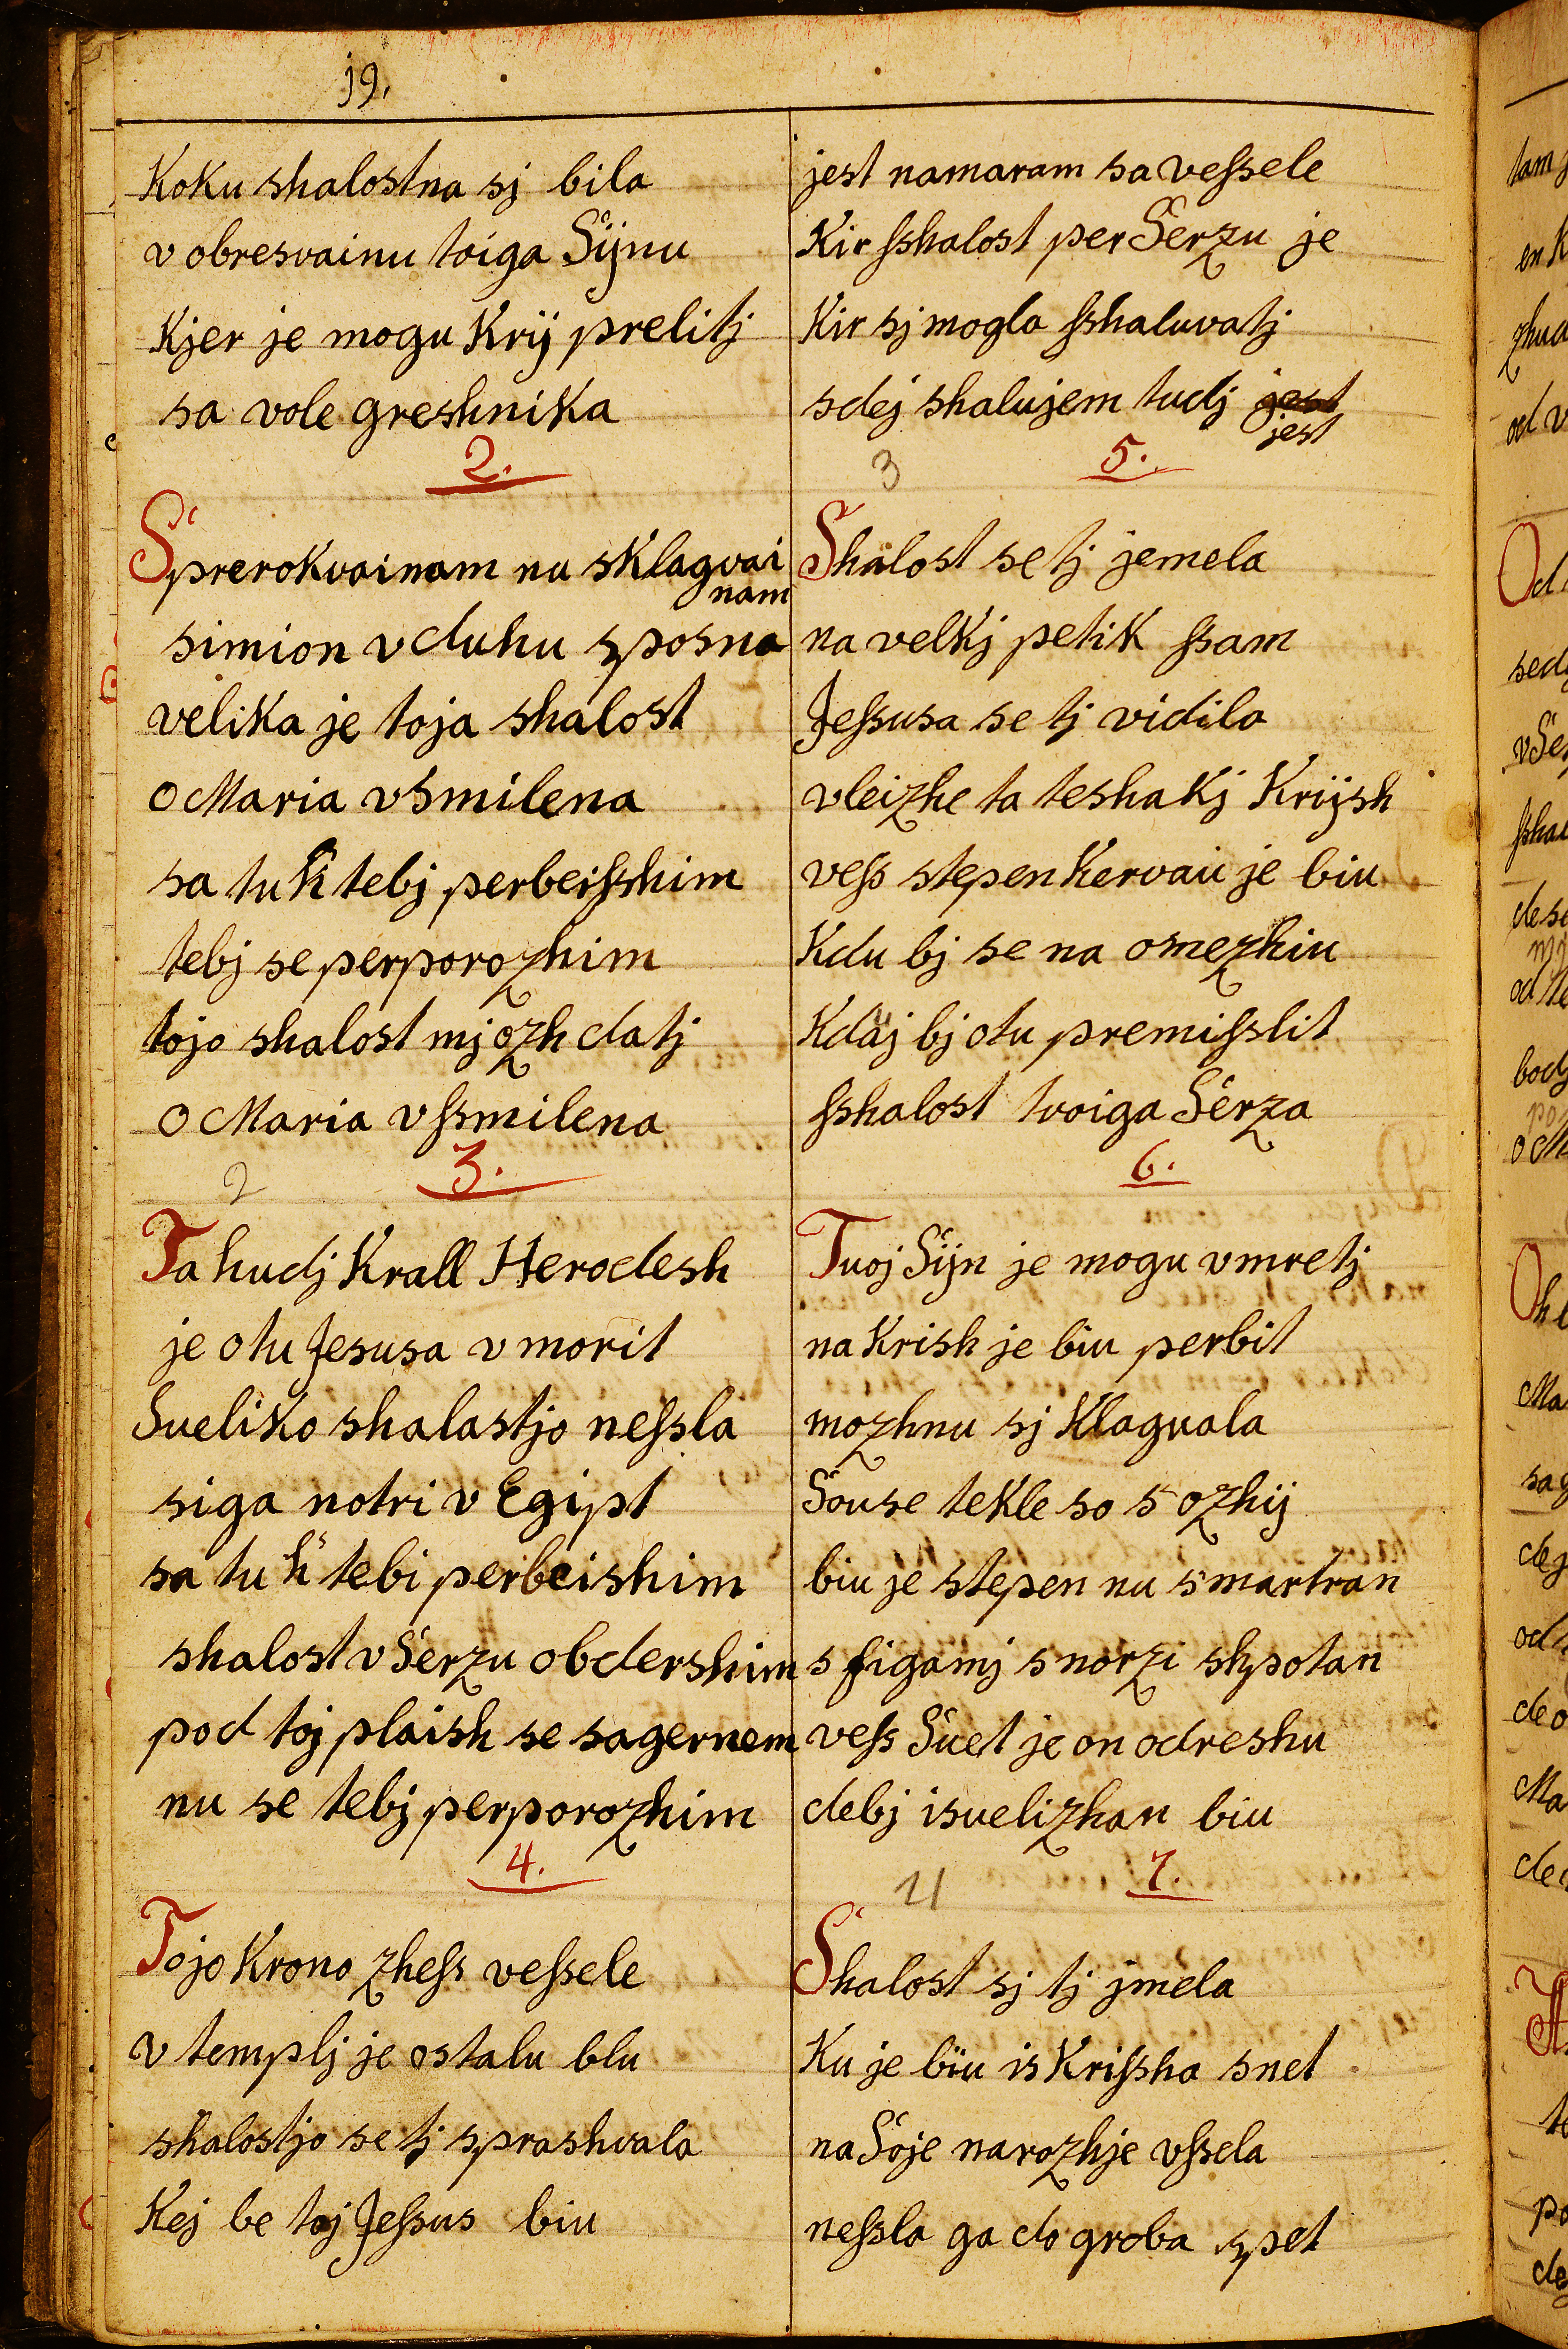 19.
Koku shalostna sj bila
v obresvainu toiga Sijnu
Kjer je mogu Krij prelitj
sa vole greshnika
2.
Sprerokvainam nu sklagvai
nam
simion v duhu sposna
velika je toja shalost
o Maria vsmilena
sa tu k tebj perbeisshim
tebj se perporozhim
tojo shalost mj ozh datj
o Maria vssmilena
2 3.
Ta hudj Krall Herodesh
je otu Jesusa vmorit
Sueliko shalastjo nessla
siga notri v Egipt
sa tu k tebi perbeishim
shalost v Serzu obdershim
pod toj plaish se sagernem
nu se tebj perporozhim
4.
Tojo Krono zhess vessele
v templj je ostalu blu
shalostjo se tj sprashvala
Kej be toj Jessus biu
jest namaram sa vessele
Kir sshalost per Serzu je
Kir sj mogla sshaluvatj
sdej shalujem tudj jest
jest
3 5.
Shalost se tj jemela
na velkj petik ssam
Jessusa se tj vidila
vleizhe ta teshakj Krijsh
vess stepen Kervaiu je biu
Kdu bj se na omezhiu
Kdaj bj otu premisslit
sshalost tvoiga Serza
6.
Tuoj Sijn je mogu vmretj
na Krish je biu perbit
mozhnu sj Klaguala
Souse tekle so s ozhij
biu je stepen nu smartran
s figamj s norzi shpotan
vess Suet je on odreshu
debj isuelizhan biu
4 7.
Shalost sj tj jmela
Ku je biu is Krissha snet
na Soje narozhje vssela
nessla ga do groba spet